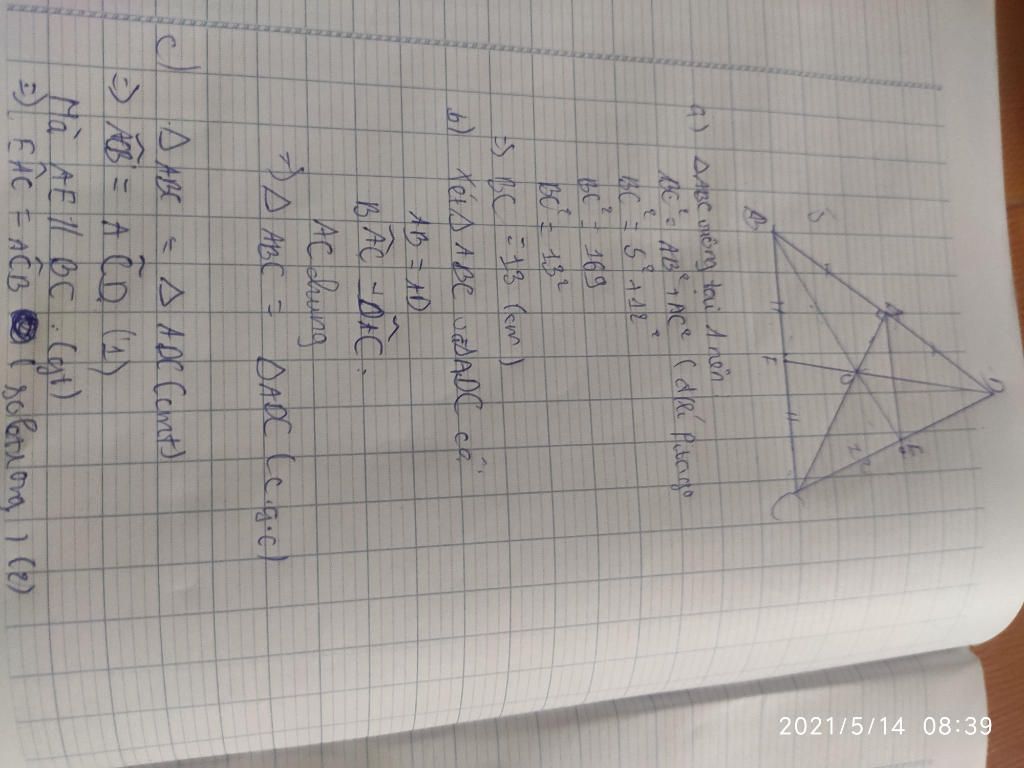 D
A
E
5
12
O
B
F
C
a) Δ ABC vuông tại A nên
BC² = AB² + AC² ( đ/lí Pitago
BC² = 5² + 12²
BC² = 169
BC² = 13²
=> BC = 13 (cm)
b) Xét Δ ABC và Δ ADC có
AB = AD
BÂC = DÂC
AC chung
=> Δ ABC = Δ ADC ( c.g.c)
c) Δ ABC = Δ ADC (cmt)
=> AĈB = AĈD (1)
Mà AE // BC (gt)
=> EÂC = AĈB ( ) (2)
2021/5/14 08:39